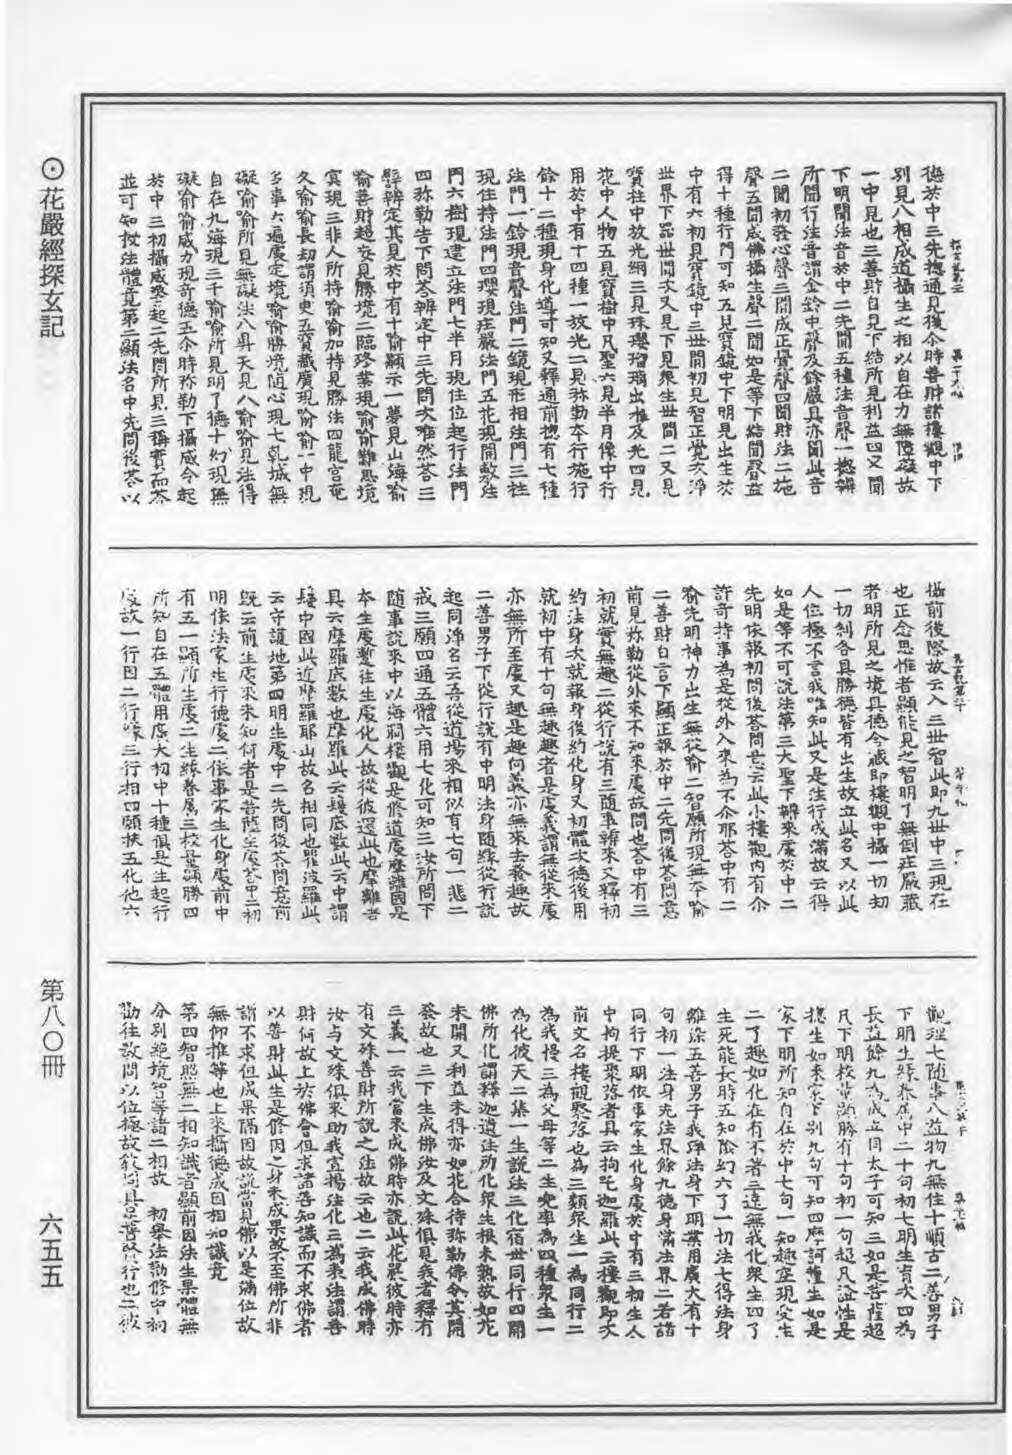 德於中三先總通見後今時善財諸樓觀中下
別見八相成道攝生之相以自在力無障礙故
一中見也三善財自見下結所見利益四又聞
下明聞法音於中二先聞五種法音聲一總辨
所聞行法音謂金鈴中聲及餘嚴具亦聞此音
二聞初發心聲三聞成正覺聲四聞財法二施
聲五聞成佛攝生聲二聞如是等下結聞聲益
得十種行門可知五見寶鏡中下明見出生於
中有六初見寶鏡中三世間初見智正覺次淨
世界下器世間次又見下見衆生世間二又見
寶柱中放光網三見珠瓔瑠璃出水及光四見
花中人物五見寶樹中凡聖六見半月像中行
用於中有十四種一放光二見弥勒本行施行
餘十二種現身化導可知又釋通前總有七種
法門一鈴現音聲法門二鏡現形相法門三柱
現住持法門四瓔現莊嚴法門五花現開敷法
門六樹現建立法門七半月現住位起行法門
四弥勒告下問荅辨定中三先問次唯然荅三
譬辨定其見於中有十喻顯示一夢見山海喻
喻善財超交見勝境二臨終業現喻喻難思境
冥現三非人所持喻喻加持見勝法四龍宮奄
久喻喻長劫謂須臾五寶藏廣現喻喻一中現
多事六遍處定境喻喻勝境随心現七乹城無
礙喻喻所見無礙法八昇天見八喻喻見法得
自在九海現三千喻喻所見明了德十幻現無
礙喻喻威力現奇德五介時弥勒下攝威令起
於中三初攝威學起二先問所見三稱實而荅
並可知叙法體竟第二顯法名中先問後荅以
攝前後際故云入三世智此即九世中三現在
也正念思惟者顯能見之智明了無倒莊嚴藏
者明所見之境具德今藏即樓觀中攝一切刧
一切剎各具勝德皆有出生故立此名又以此
人位極不言我唯知此又是法行成滿故云得
如是等不可說法第三大聖下辨來處於中二
先明依報初問後荅問意云此小樓觀内有介
許奇特事為是從外入來為不介耶荅中有二
喻先明神力出生無從喻二智願所現無本喻
二善財白言下顯正報於中二先問後荅問意
前見弥勒從外來不知來處故問也荅中有三
初就實無趣二從行說有三隨事辨來又釋初
約法身次就報身後約化身又初體次德後用
就初中有十句無趣趣者是處義謂無從來處
亦無所至處又趣是趣向義亦無來去發趣故
二善男子下從行說有中明法身随緣從行說
起同淨名云吾從道場來相似有七句一悲二
戒三願四通五體六用七化可知三汝所問下
随事說來中以海㵎樓觀是修道處摩離國是
本生處蹔往生處化人故從彼還此也摩離者
具云摩羅底數也摩羅此云鬘底數此云中謂
鬘中國此近摩羅耶山故名相同也毘波羅此
云守護地第四明生處中二先問後荅問意前
既云前生處來未知何者是菩薩生處荅中二初
明依法家生行德處二依事家生化身處前中
有五一顯所生處二生緣眷屬三校量顯勝四
所知自在五體用廣大初中十種俱是生起行
處故一行因二行緣三行相四願扶五化他六
觀理七随事八益物九無住十順古二善男子
下明生緣眷屬中二十句初七明生育次四為
長益餘九為成立同太子可知三如是菩薩超
凡下明校量顯勝有十句初一句超凡證性是
總生如來家下别九句可知四摩訶薩生如是
家下下明所知自在於中七句一知趣空現受生
二了趣如化在有不著三達無我化衆生四了
生死能長時五知陰幻六了一切法七得法身
離染五善男子我淨法身下明業用廣大有十
句初一法身充法界餘九德身滿法界二若諸
同行下明依事家生化身處於中有三初生人
中拘提聚落者具云拘吒迦羅此云樓觀即次
前文名樓觀聚落也為三類衆生一為同行二
為我慢三為父母等二生兜率為四種衆生一
為化彼天二集一生說法三化宿世同行四開
佛所化謂釋迦遺法所化衆生根未熟故如花
未開又利益未得亦如花合待弥勒佛令其開
發故也三下生成佛汝及文殊俱見我者釋有
三義一云我當來成佛時亦說此花嚴彼時亦
有文殊善財所說之法故云也二云我成佛時
汝与文殊俱來助我宣揚法化三為表法謂善
財何故上於佛會但求諸善知識而不求佛者
以善財此生是修因之身未成果㷠至佛所非
謂不求但成果隔因故說當見佛以是滿位故
無仰推等也上來攝德成因相知識竟
第四智照無二相知識者顯前因法生果體無
分别絶境智等諸二相故　初舉法勸修中初
勸往故問以位極故能[...]具是菩薩行也二彼
⊙花嚴經探玄記
第八〇冊
六五五